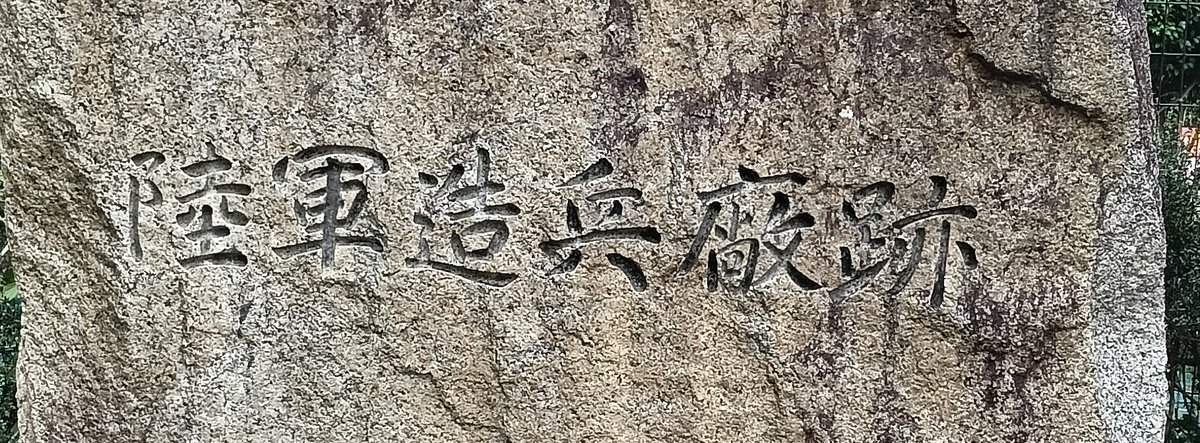 陸軍造兵廠跡